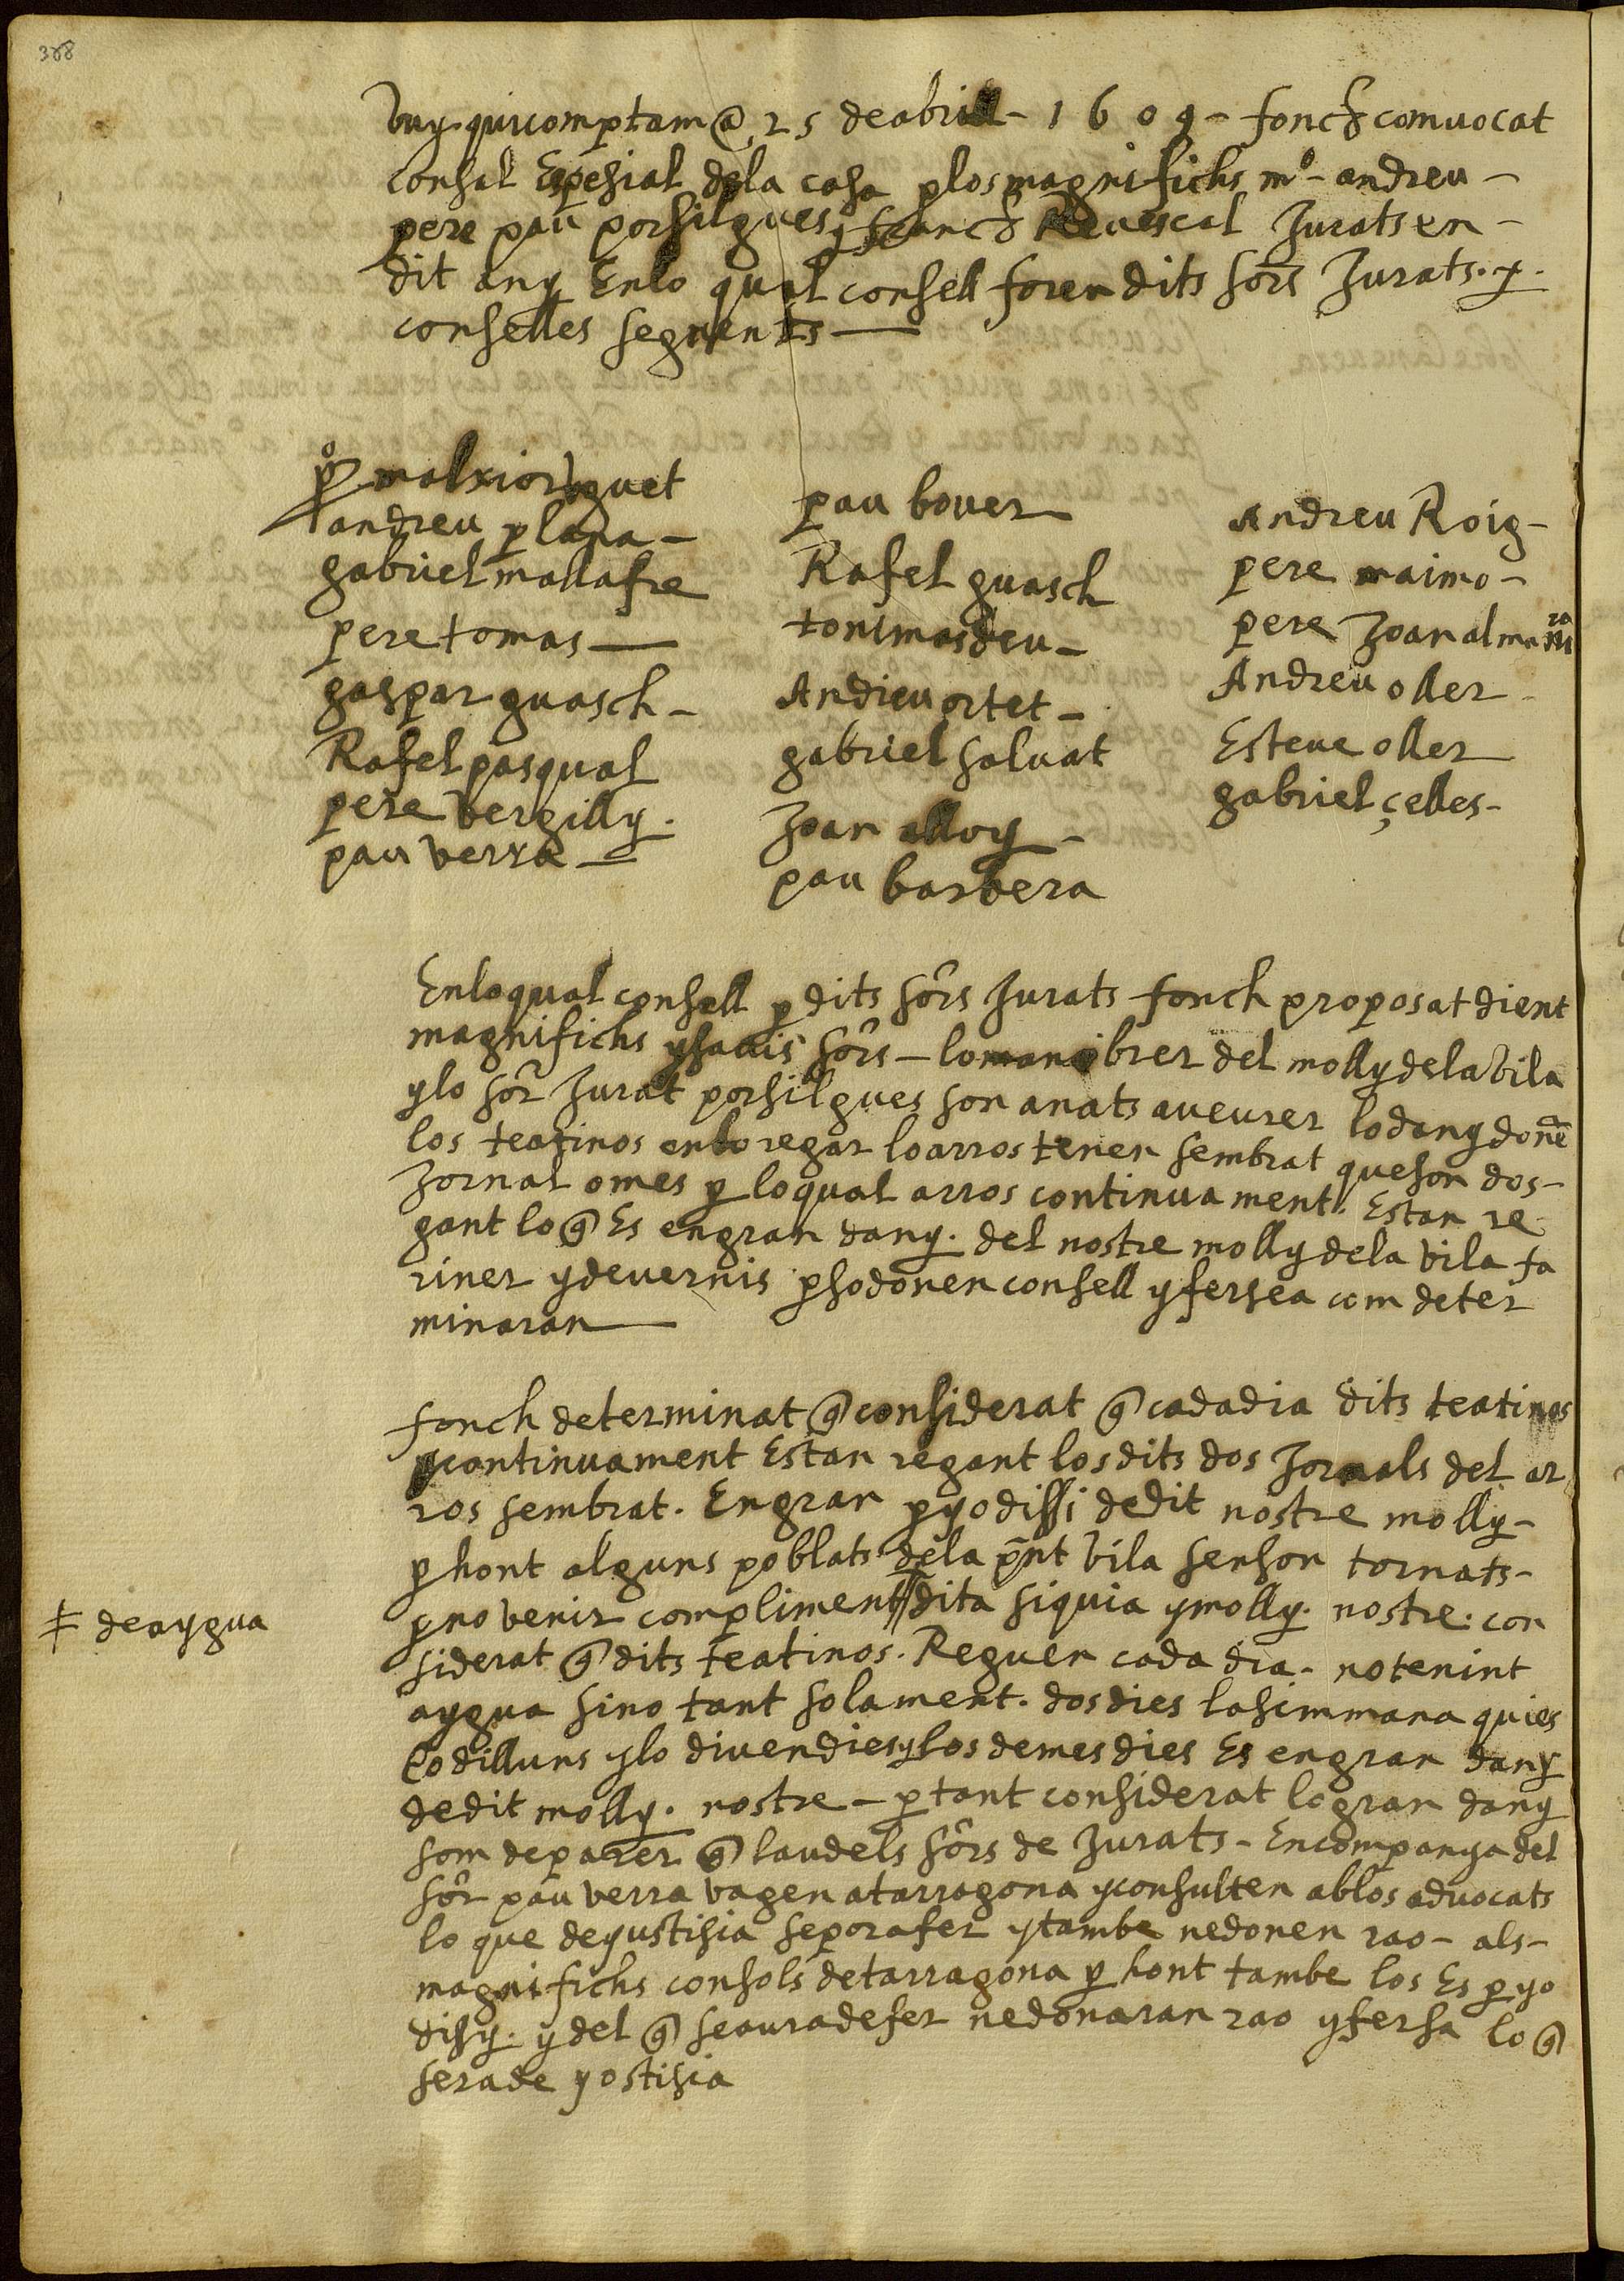 388
vuy quicomptam @ 25 deabrill - 1609 - fonch comvocat
consal Espesial dela casa p los magnifichs mº - andreu -
pere pau porsilgues y franch Revescal Jurats en -
dit any Enlo qual consell foren dits sors Jurats. y
conselles seguents —
pº malxior huguet
andreu plana -
gabriel mallafre
pere tomas —
gaspar guasch -
Rafel pasqual
pere vergilly.
pau verra —
pau bover
Rafel guasch
toni masdeu -
Andreu ortet -
gabriel salvat
Joan alloy -
pau barbera
Andreu Roig -
pere maimo -
pere Joan almu ra
Andreu oller -
Esteve oller
gabriel çelles -
Enloqual consell p dits sors Jurats fonch proposat dient
magnifichs ysavis sors - lo manobrer del molly dela vila
ylo sor Jurat porsilgues son anats aveurer lo dany donē
los teatinos enlo regar lo arros tenen sembrat que son dos -
Jornal omes p loqual arros continuament. Estan re
gant lo q̄ Es engran dany. del nostre molly dela vila fa
riner y devernis p so donen consell y fersea com deter
minaran —
fonch determinat q̄ considerat q̄ cadadia dits teatinos
continuament Estan regant losdits dos Jornals del ar
ros sembrat. Engran p yodissi dedit nostre molly -
p hont alguns poblats dela pnt vila senson tornats -
p no venir compliment ‡ dita siquia ymolly. nostre. con
‡ deaygua
siderat q̄ dits teatinos. Reguen cada dia - notenint
aygua sino tant solament. dosdies lasimmana quies
lo dilluns ylo divendies ylos demes dies Es engran dany
dedit molly. nostre - p tant considerat logran dany
som deparer q̄ laudels sors de Jurats - Encompanya del
sor pau verra vagen atarragona yconsulten ablos advocats
lo que deyustisia seporafer ytambe nedonen rao - als -
magnifichs consols detarragona p hont tambe los Es p yo
disy. y del q̄ seauradefer nedonaran rao yfersa lo q̄
serade yostisia